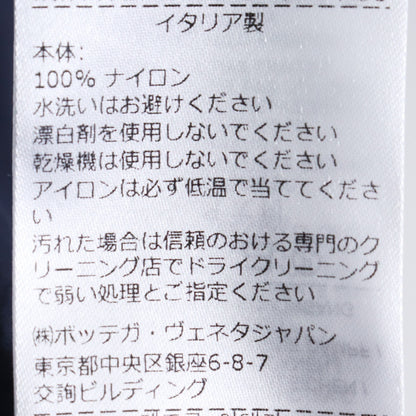 イタリア製
本体:
100% ナイロン
水洗いはお避けください
漂白剤を使用しないでください
乾燥機は使用しないでください
アイロンは必ず低温で当ててくださ
い
汚れた場合は信頼のおける専門のク
リーニング店でドライクリーニング
で弱い処理とご指定ください
㈱ボッテガ・ヴェネタジャパン
東京都中央区銀座6-8-7
交詢ビルディング